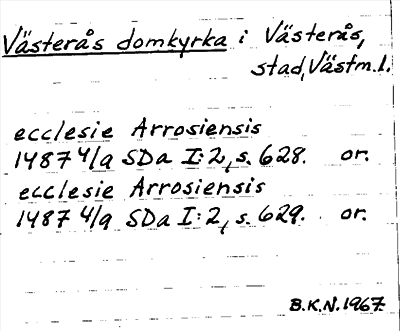 Västerås domkyrka i Västerås,
stad, Västm.l.
ecclesie Arrosiensis
1487 4/9 SDa I:2, s. 628. or.
ecclesie Arrosiensis
1487 4/9 SDa I:2, s. 629. or.
B.K.N. 1967.